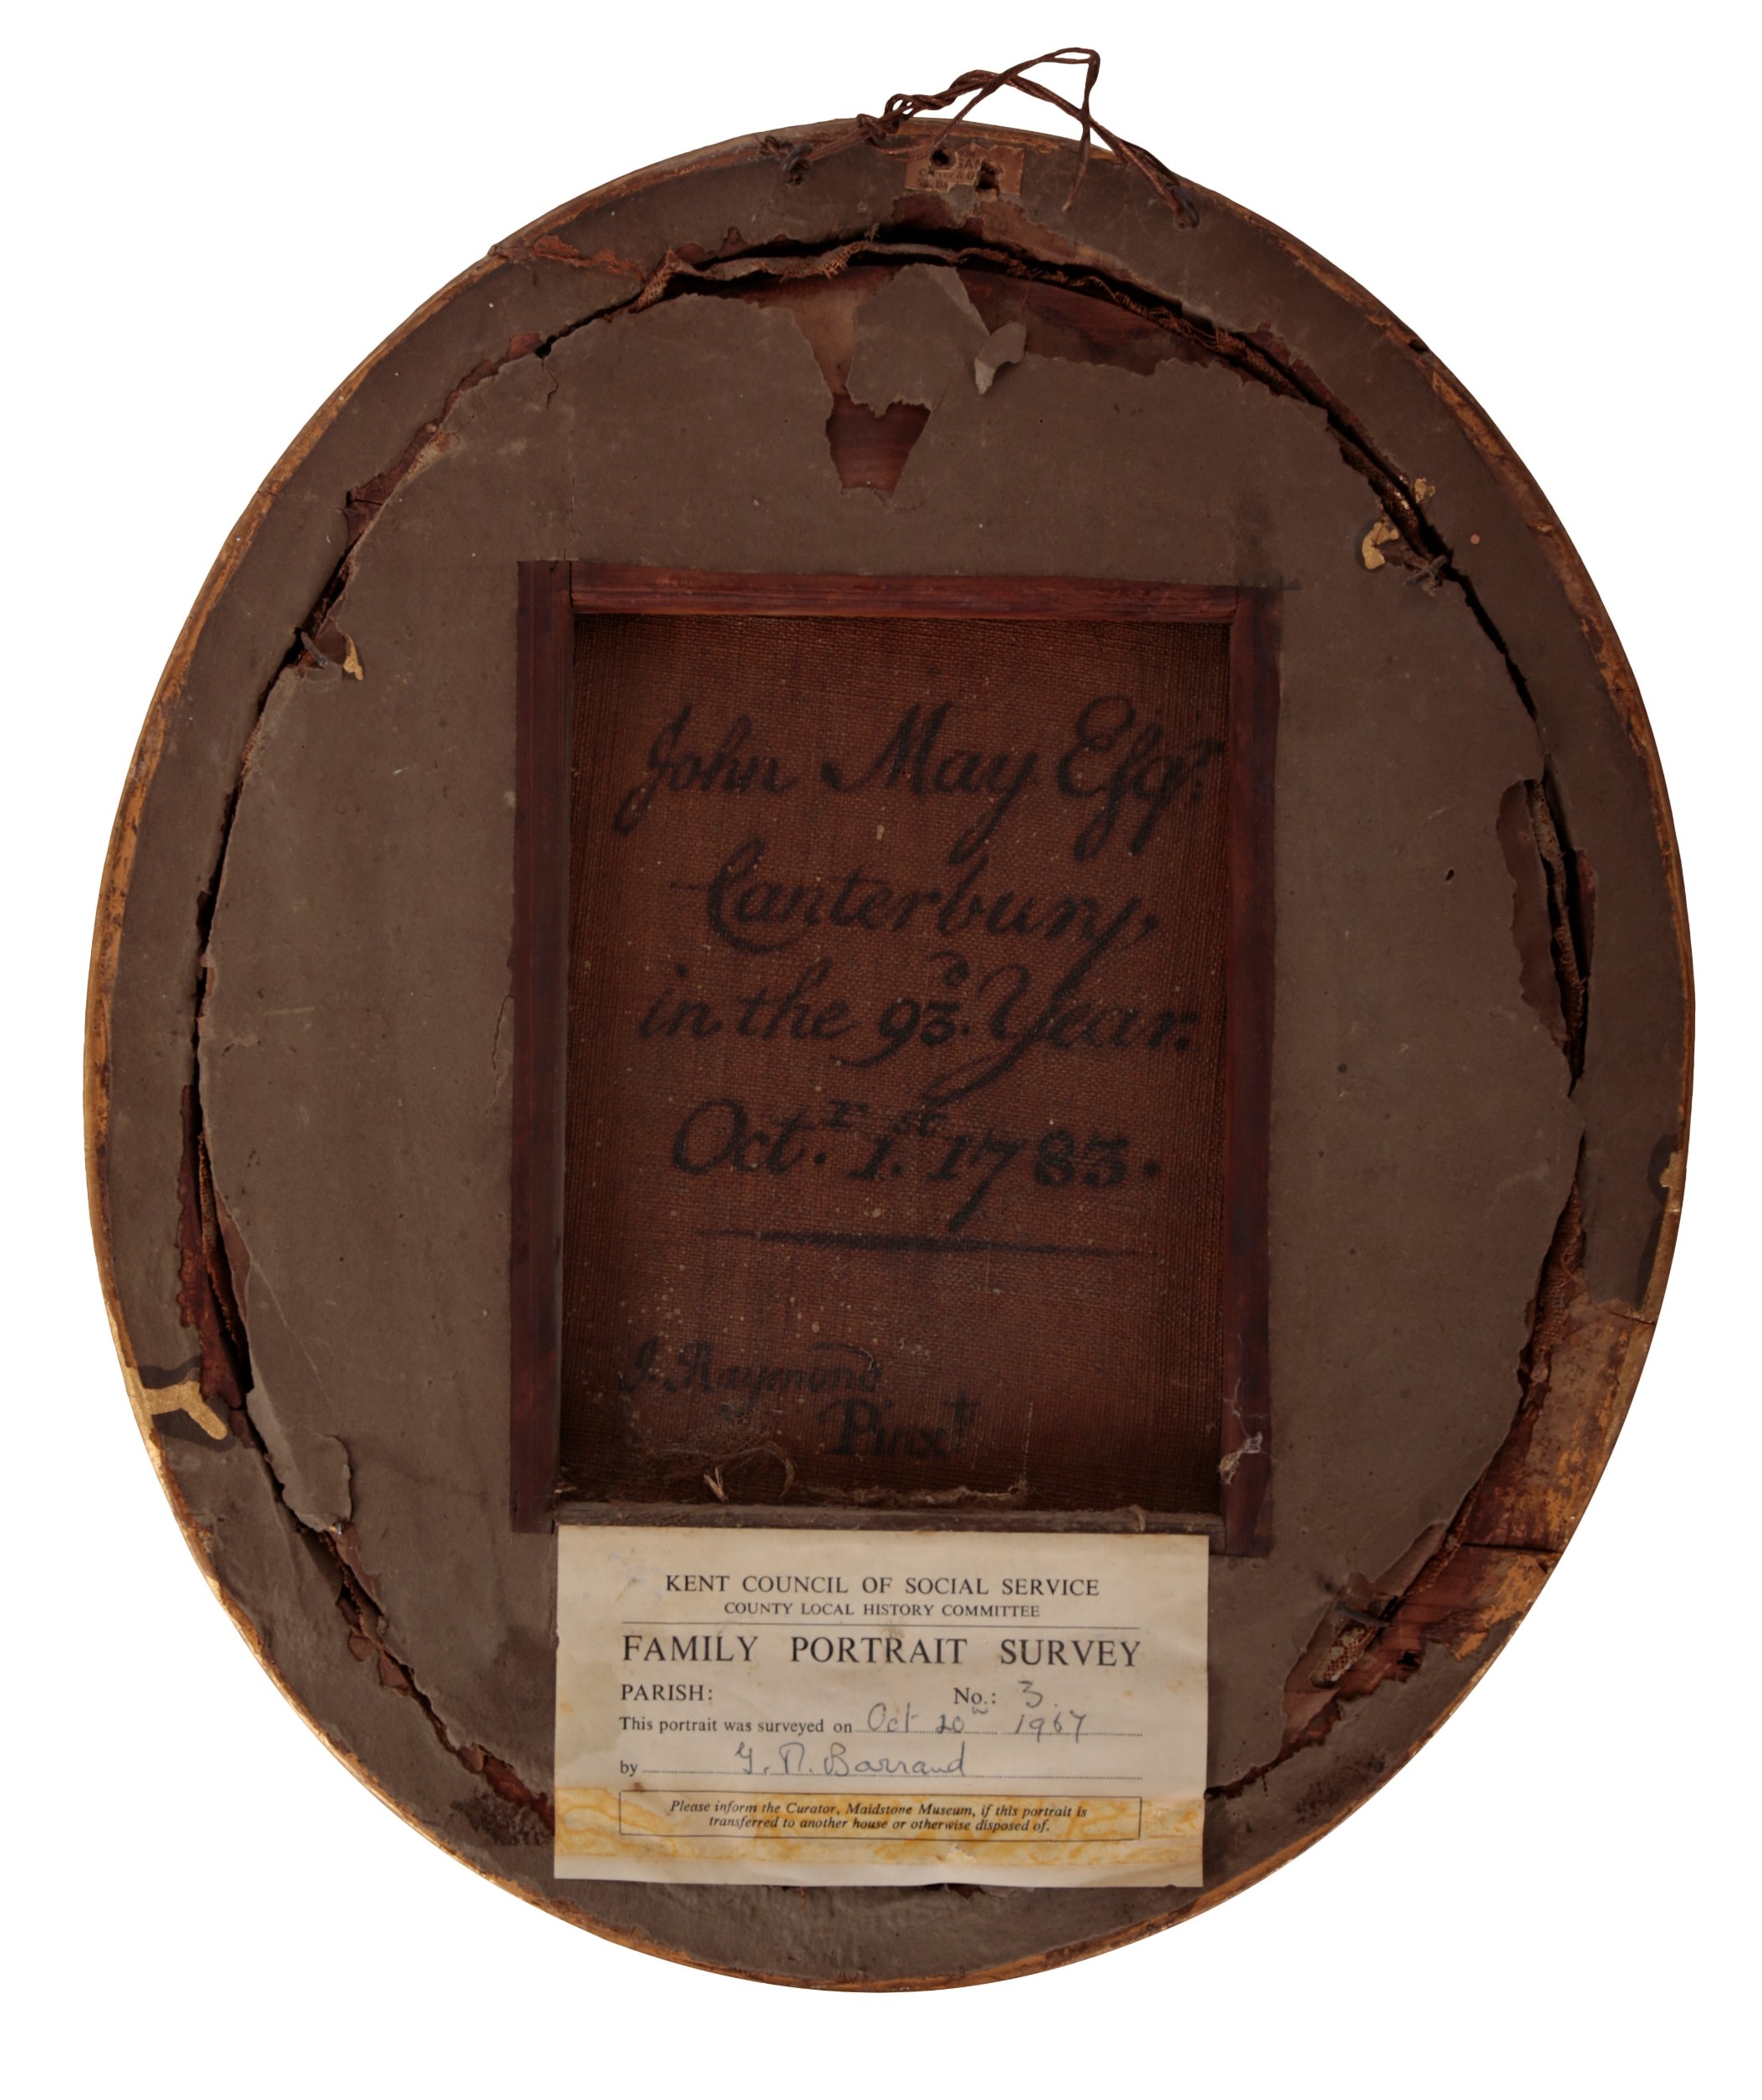 John May Esqr.
Canterbury,
in the 93d. Year.
Octr. 1st. 1783.
J. Raymond
Pinxt
KENT COUNCIL OF SOCIAL SERVICE
COUNTY LOCAL HISTORY COMMITTEE
FAMILY PORTRAIT SURVEY
PARISH: No.: 3.
This portrait was surveyed on Oct 20th 1967
by G. N. Barrand
Please inform the Curator, Maidstone Museum, if this portrait is
transferred to another house or otherwise disposed of.